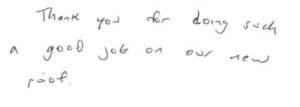 Thank you for doing such
a good job on our new
roof.